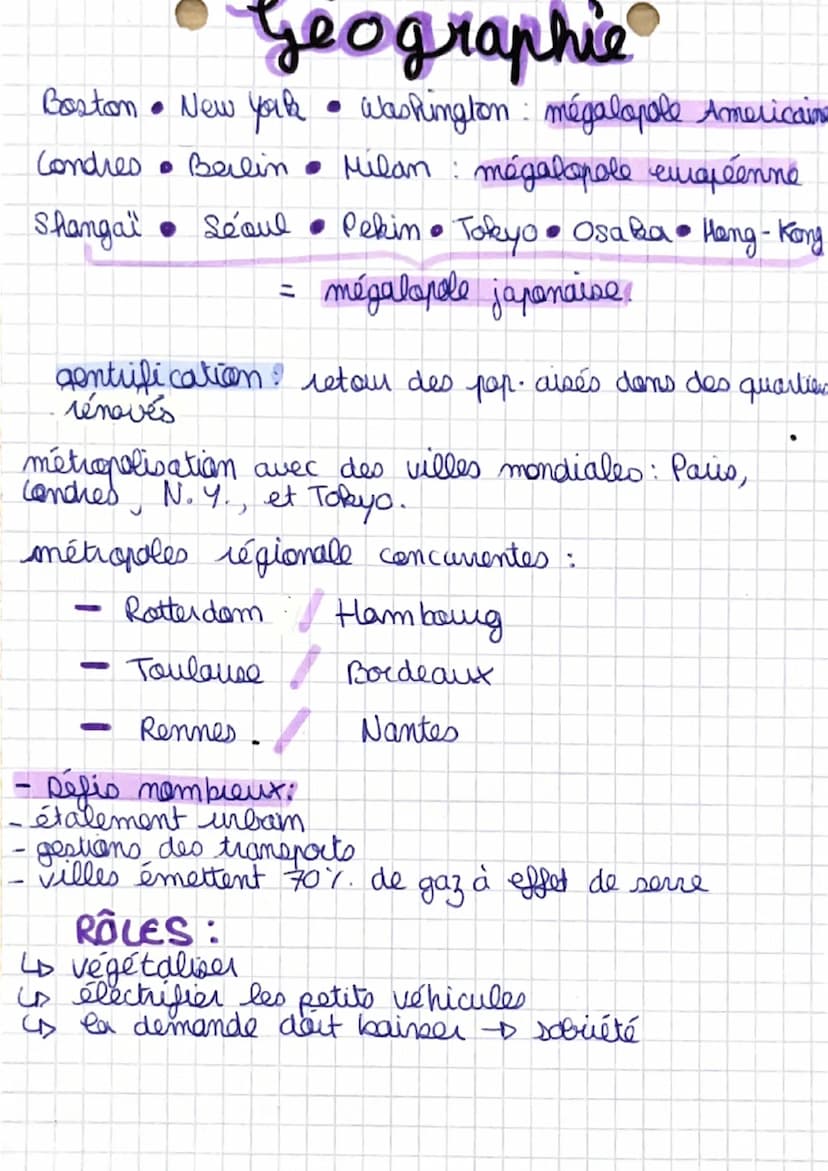 Géographie
Boston • New York • Washington : mégalopole Americaine
Londres • Berlin • Milan : mégalopole européenne
Shangaï • Séoul • Pekin • Tokyo • Osaka • Hong-Kong
= mégalopole japonaise.
gentrification : retour des pop. aisés dans des quartiers
rénovés
métropolisation avec des villes mondiales : Paris,
Londres, N.Y., et Tokyo.
métropoles régionale concurrentes :
- Rotterdam / Hambourg
- Toulouse / Bordeaux
- Rennes . / Nantes
- Défis nombreux :
- étalement urbain
- gestions des transports
- villes émettent 70% de gaz à effet de serre
RÔLES :
↳ végétaliser
↳ électrifier les petits véhicules
↳ la demande doit baisser → sobriété